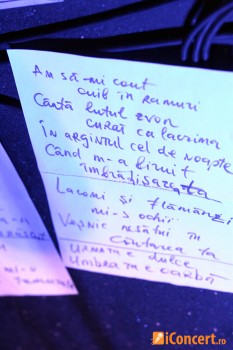 Am să-mi caut
cuib în ramuri
Cântă lutul zvon
curat ca lacrima
În argintul cel de noapte
Când m-a biruit
îmbrățișarea
Lacomi și flămânzi
mi-s ochii
Veșnic nesătui în
căutarea ta
URMA TA E DULCE
UMBRA TA E OARBĂ
iConcert.ro